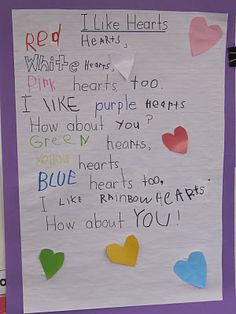 I Like Hearts
Red Hearts,
White Hearts,
Pink hearts too.
I LIKE purple Hearts
How about You?
Green hearts,
yellow hearts,
BLUE hearts too,
I LIKE RAINBOW HEARTS.
How about YOU!